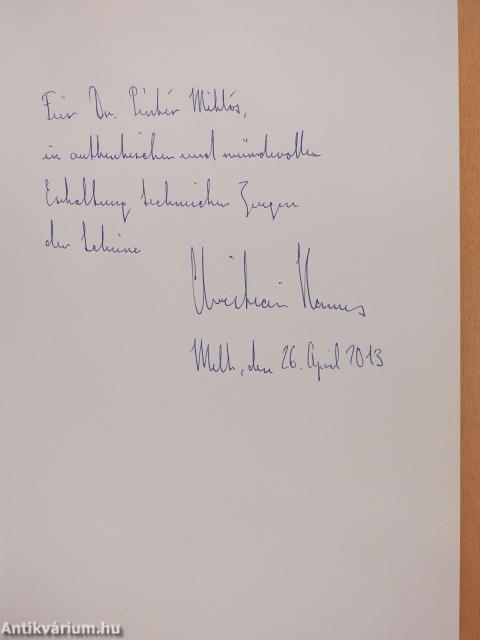 Für Dr. Pintér Miklós,
in authentischen und würdevollen
Erhaltung technischer Zeugen
der
Christian Hannes
Melk, den 26. April 2013
Antikvárium.hu